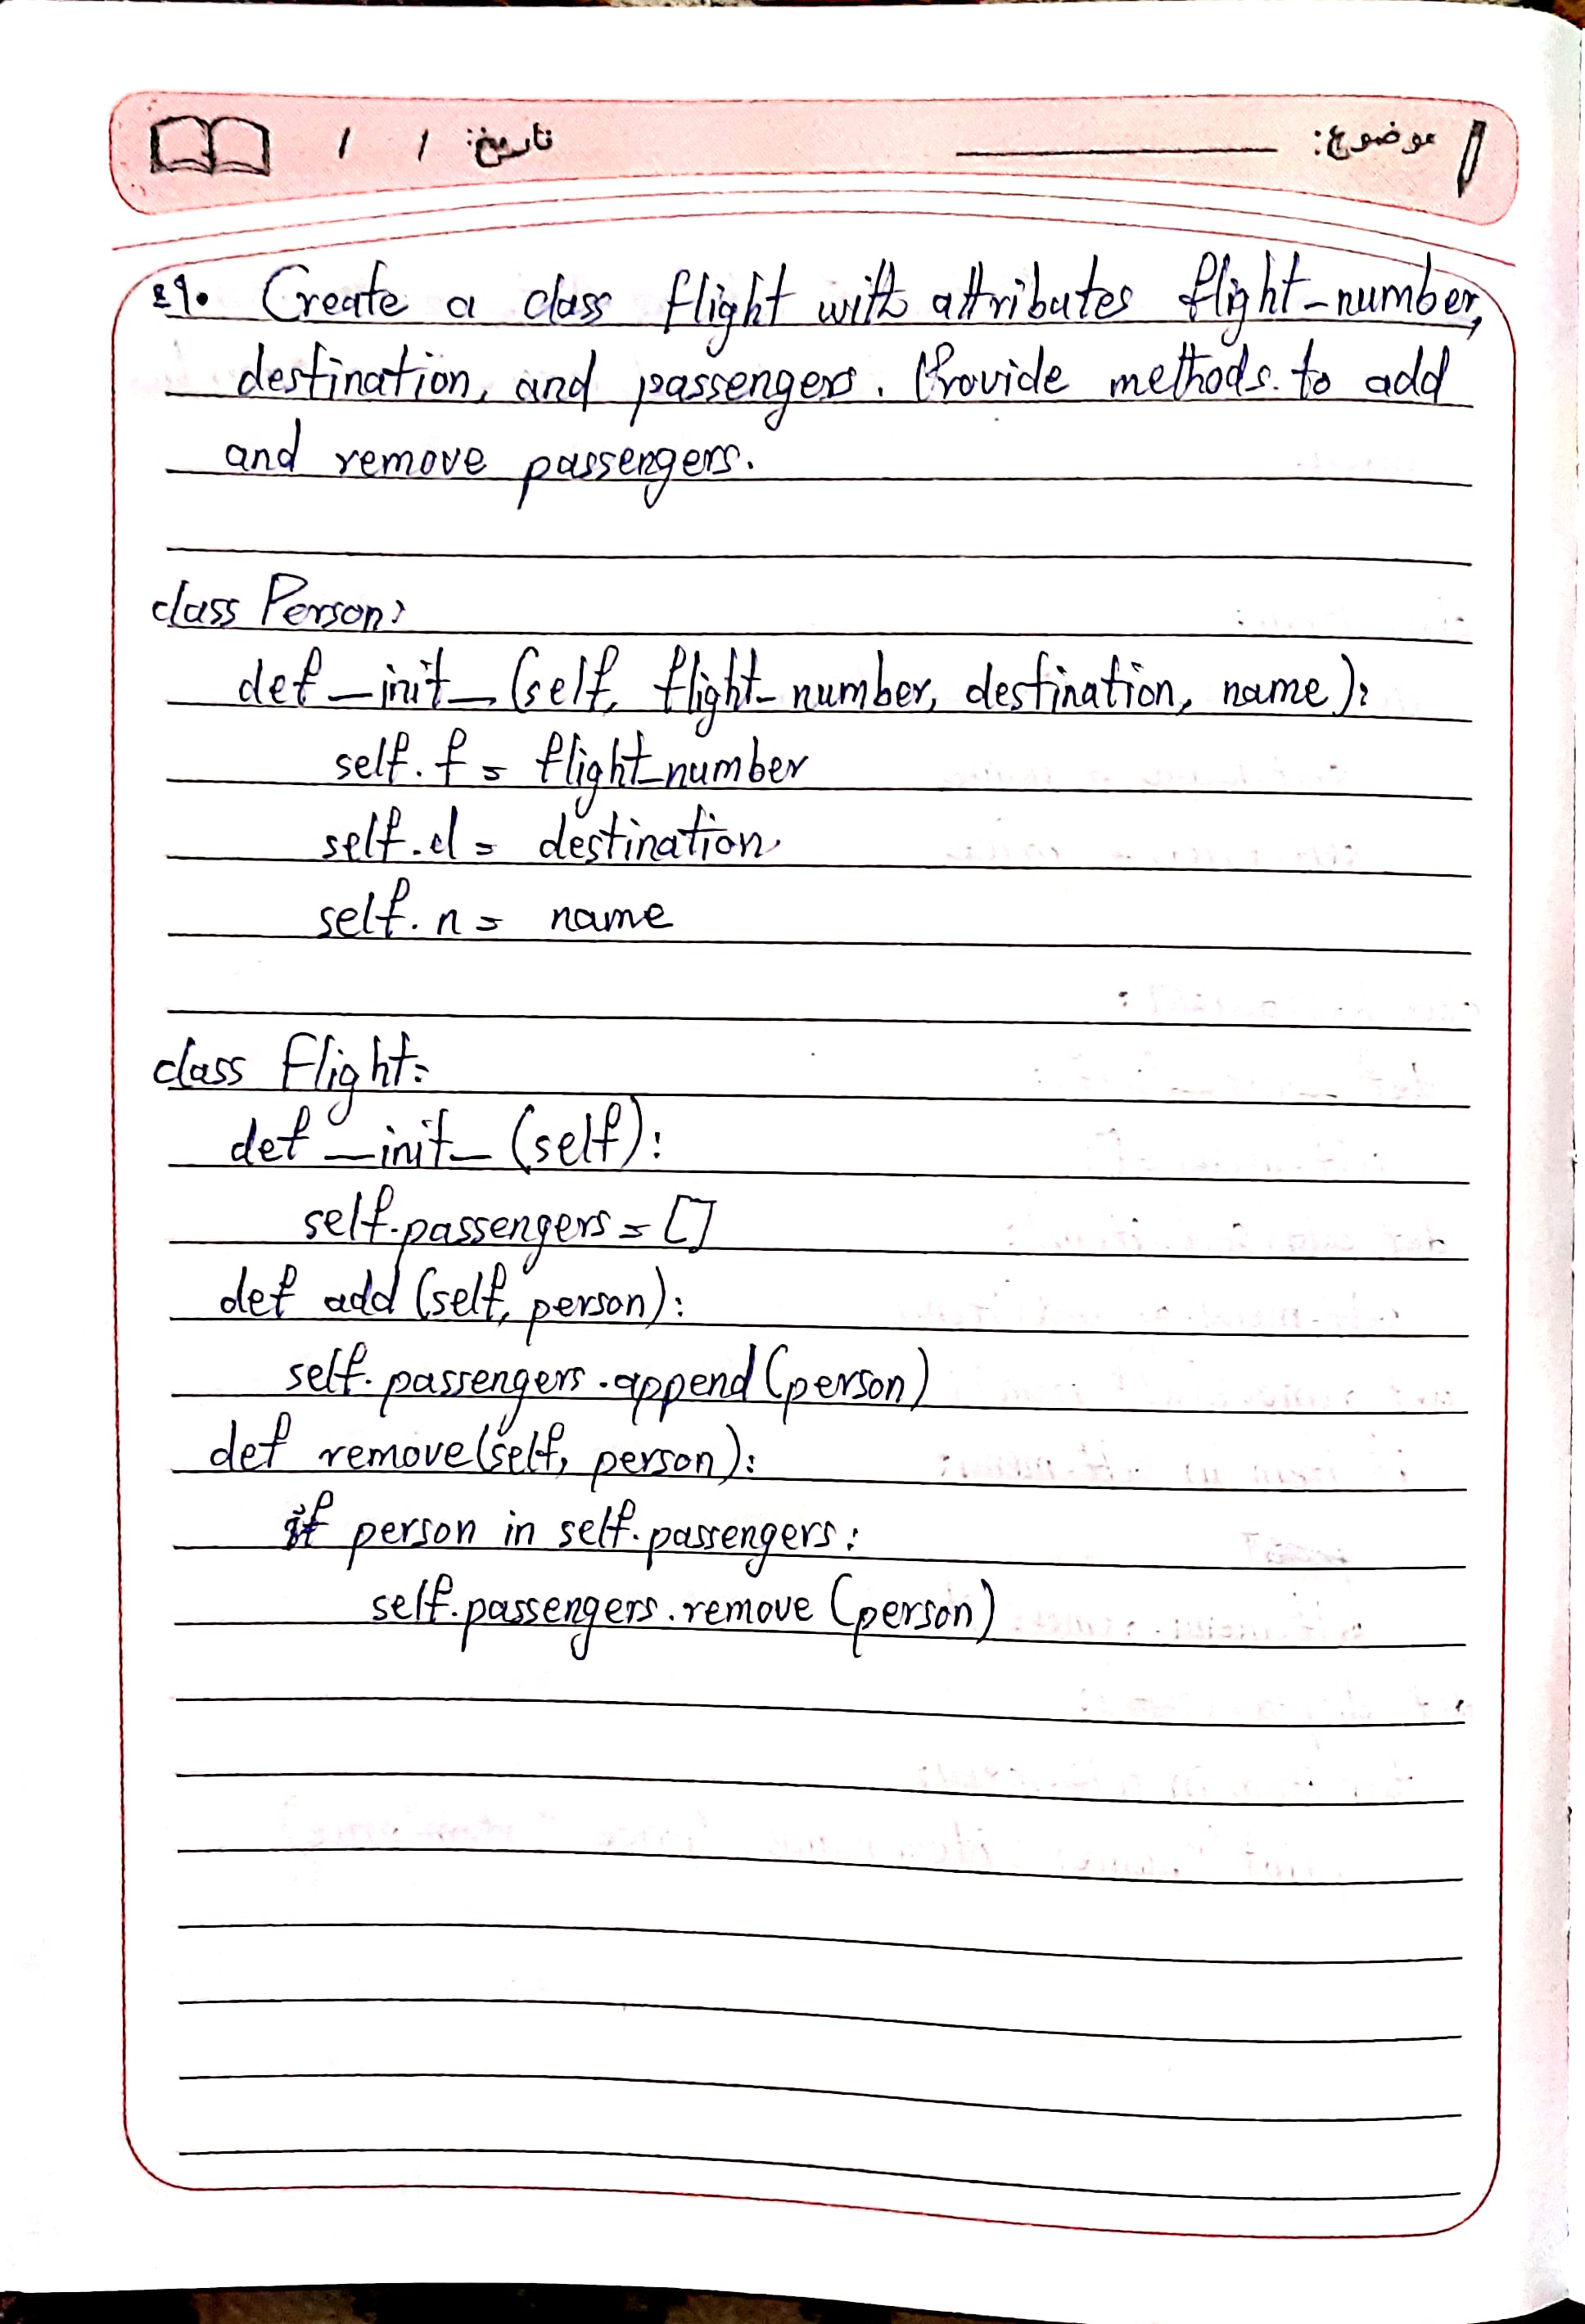 موضوع: تاریخ: / /
49. Create a class flight with attributes flight-number,
destination, and passengers. Provide methods. to add
and remove passengers.
class Person:
def _init_ (self, flight_number, destination, name):
self.f = flight_number
self.d = destination
self.n = name
class Flight:
def _init_ (self):
self.passengers = []
def add (self, person):
self.passengers.append(person)
def remove(self, person):
if person in self.passengers:
self.passengers.remove (person)